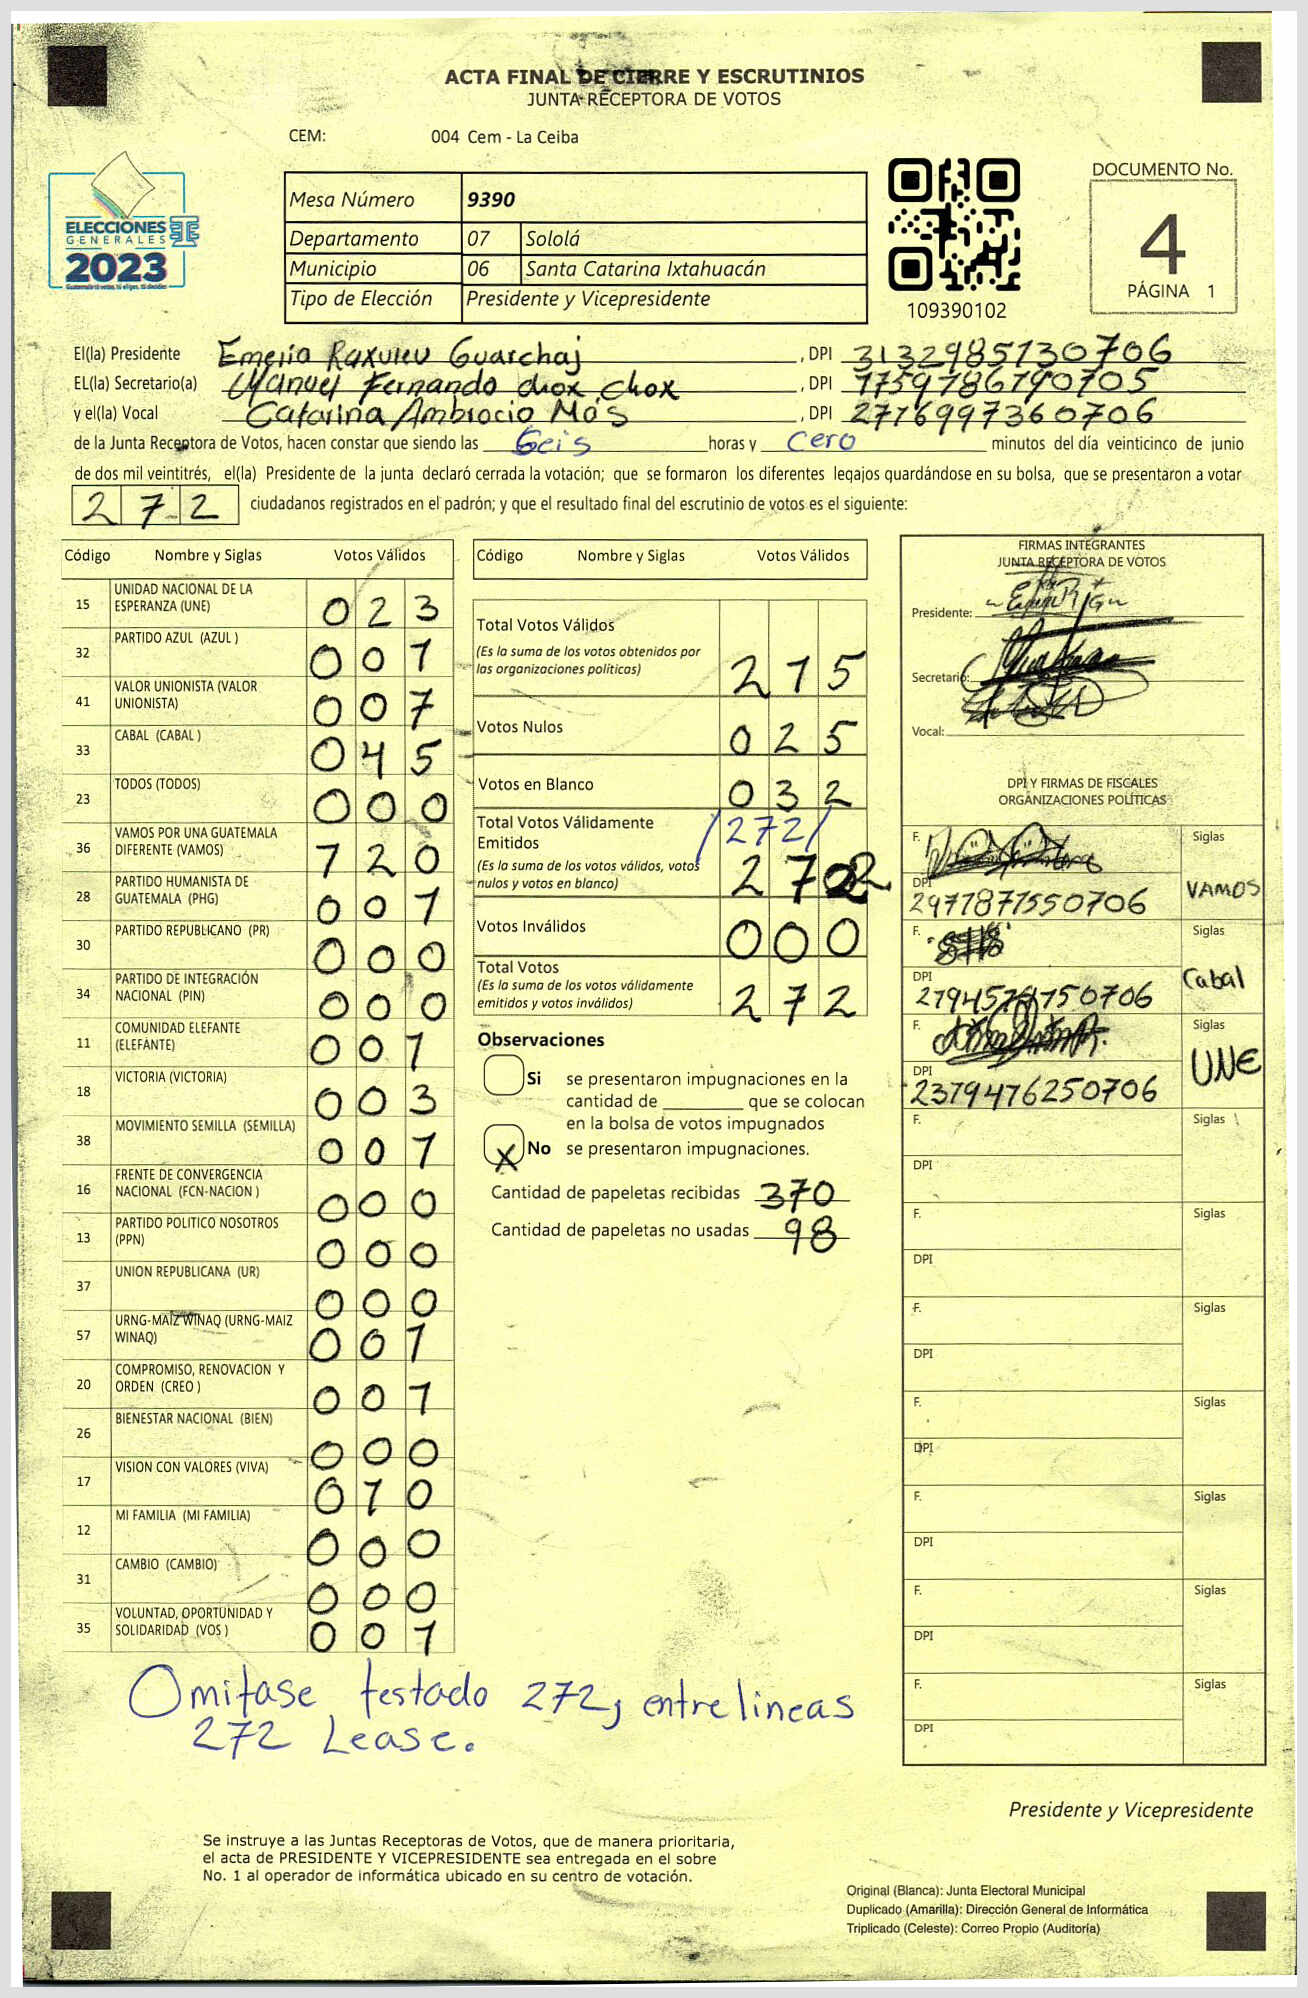 ACTA FINAL DE CIERRE Y ESCRUTINIOS
JUNTA RECEPTORA DE VOTOS
CEM: 004 Cem - La Ceiba
ELECCIONES
GENERALES
2023
Mesa Número 9390
Departamento 07 Sololá
Municipio 06 Santa Catarina Ixtahuacán
Tipo de Elección Presidente y Vicepresidente
109390102
DOCUMENTO No.
4
PÁGINA 1
El(la) Presidente Emeria Raxuleu Guarchaj , DPI 3132985130706
EL(la) Secretario(a) Manuel Fernando chox chox , DPI 1759786790705
y el(la) Vocal Catarina Ambrocio Más , DPI 2776997360706
de la Junta Receptora de Votos, hacen constar que siendo las Seis horas y cero minutos del día veinticinco de junio
de dos mil veintitrés, el(la) Presidente de la junta declaró cerrada la votación; que se formaron los diferentes legajos guardándose en su bolsa, que se presentaron a votar
272 ciudadanos registrados en el padrón; y que el resultado final del escrutinio de votos es el siguiente:
Código Nombre y Siglas Votos Válidos
15 UNIDAD NACIONAL DE LA ESPERANZA (UNE) 023
32 PARTIDO AZUL (AZUL ) 001
41 VALOR UNIONISTA (VALOR UNIONISTA) 007
33 CABAL (CABAL ) 045
23 TODOS (TODOS) 000
36 VAMOS POR UNA GUATEMALA DIFERENTE (VAMOS) 120
28 PARTIDO HUMANISTA DE GUATEMALA (PHG) 001
30 PARTIDO REPUBLICANO (PR) 000
34 PARTIDO DE INTEGRACIÓN NACIONAL (PIN) 000
11 COMUNIDAD ELEFANTE (ELEFANTE) 001
18 VICTORIA (VICTORIA) 003
38 MOVIMIENTO SEMILLA (SEMILLA) 001
16 FRENTE DE CONVERGENCIA NACIONAL (FCN-NACION ) 000
13 PARTIDO POLITICO NOSOTROS (PPN) 000
37 UNION REPUBLICANA (UR) 000
57 URNG-MAIZ WINAQ (URNG-MAIZ WINAQ) 001
20 COMPROMISO, RENOVACION Y ORDEN (CREO ) 001
26 BIENESTAR NACIONAL (BIEN) 000
17 VISION CON VALORES (VIVA) 010
12 MI FAMILIA (MI FAMILIA) 000
31 CAMBIO (CAMBIO) 000
35 VOLUNTAD, OPORTUNIDAD Y SOLIDARIDAD (VOS ) 001
Código Nombre y Siglas Votos Válidos
Total Votos Válidos
(Es la suma de los votos obtenidos por
las organizaciones políticas) 215
Votos Nulos 025
Votos en Blanco 032
Total Votos Válidamente
Emitidos /272/
(Es la suma de los votos válidos, votos
nulos y votos en blanco) 272
Votos Inválidos 000
Total Votos
(Es la suma de los votos válidamente
emitidos y votos inválidos) 272
Observaciones
Si se presentaron impugnaciones en la
cantidad de ________ que se colocan
en la bolsa de votos impugnados
X No se presentaron impugnaciones.
Cantidad de papeletas recibidas 370
Cantidad de papeletas no usadas 98
FIRMAS INTEGRANTES
JUNTA RECEPTORA DE VOTOS
Presidente:
Secretario:
Vocal:
DPI Y FIRMAS DE FISCALES
ORGANIZACIONES POLÍTICAS
F. Siglas
DPI VAMOS
2971877550706
F. Siglas
DPI Cabal
F. Siglas
DPI UNE
2379476250706
F. Siglas
DPI
F. Siglas
DPI
F. Siglas
DPI
F. Siglas
DPI
F. Siglas
DPI
F. Siglas
DPI
F. Siglas
DPI
Omitase testado 272, entrelineas
272 Lease.
Presidente y Vicepresidente
Se instruye a las Juntas Receptoras de Votos, que de manera prioritaria,
el acta de PRESIDENTE Y VICEPRESIDENTE sea entregada en el sobre
No. 1 al operador de informática ubicado en su centro de votación.
Original (Blanca): Junta Electoral Municipal
Duplicado (Amarilla): Dirección General de Informática
Triplicado (Celeste): Correo Propio (Auditoría)